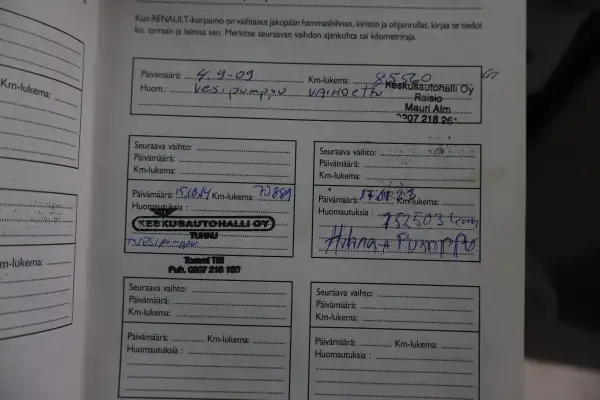 Kun RENAULT-korjaamo on vaihtanut jakopään hammashihnan, kiristin ja ohjainrullat, kirjaa se tiedot
ko. tarraan ja leimaa sen. Merkitse seuraavan vaihdon ajankohta tai kilometriraja.
Km-lukema:
Päivämäärä: 4.9-09 Km-lukema: 85560
Huom.: vesipumppu VAIHDETTU
Keskusautohalli Oy
Raisio
Mauri Alm
0207 218 26
Seuraava vaihto:
Päivämäärä:
Km-lukema:
Päivämäärä: 15.10.14 Km-lukema:
Huomautuksia :
KESKUSAUTOHALLI OY
TURKU
+vesipumppu
Tommi Tili
Puh. 0207 218 180
Seuraava vaihto:
Päivämäärä:
Km-lukema:
Päivämäärä: 17.01.23 Km-lukema:
Huomautuksia : 152503
Hihna + Pumppu
m-lukema:
Seuraava vaihto:
Päivämäärä:
Km-lukema:
Päivämäärä: Km-lukema:
Huomautuksia :
Seuraava vaihto:
Päivämäärä:
Km-lukema:
Päivämäärä: Km-lukema:
Huomautuksia :